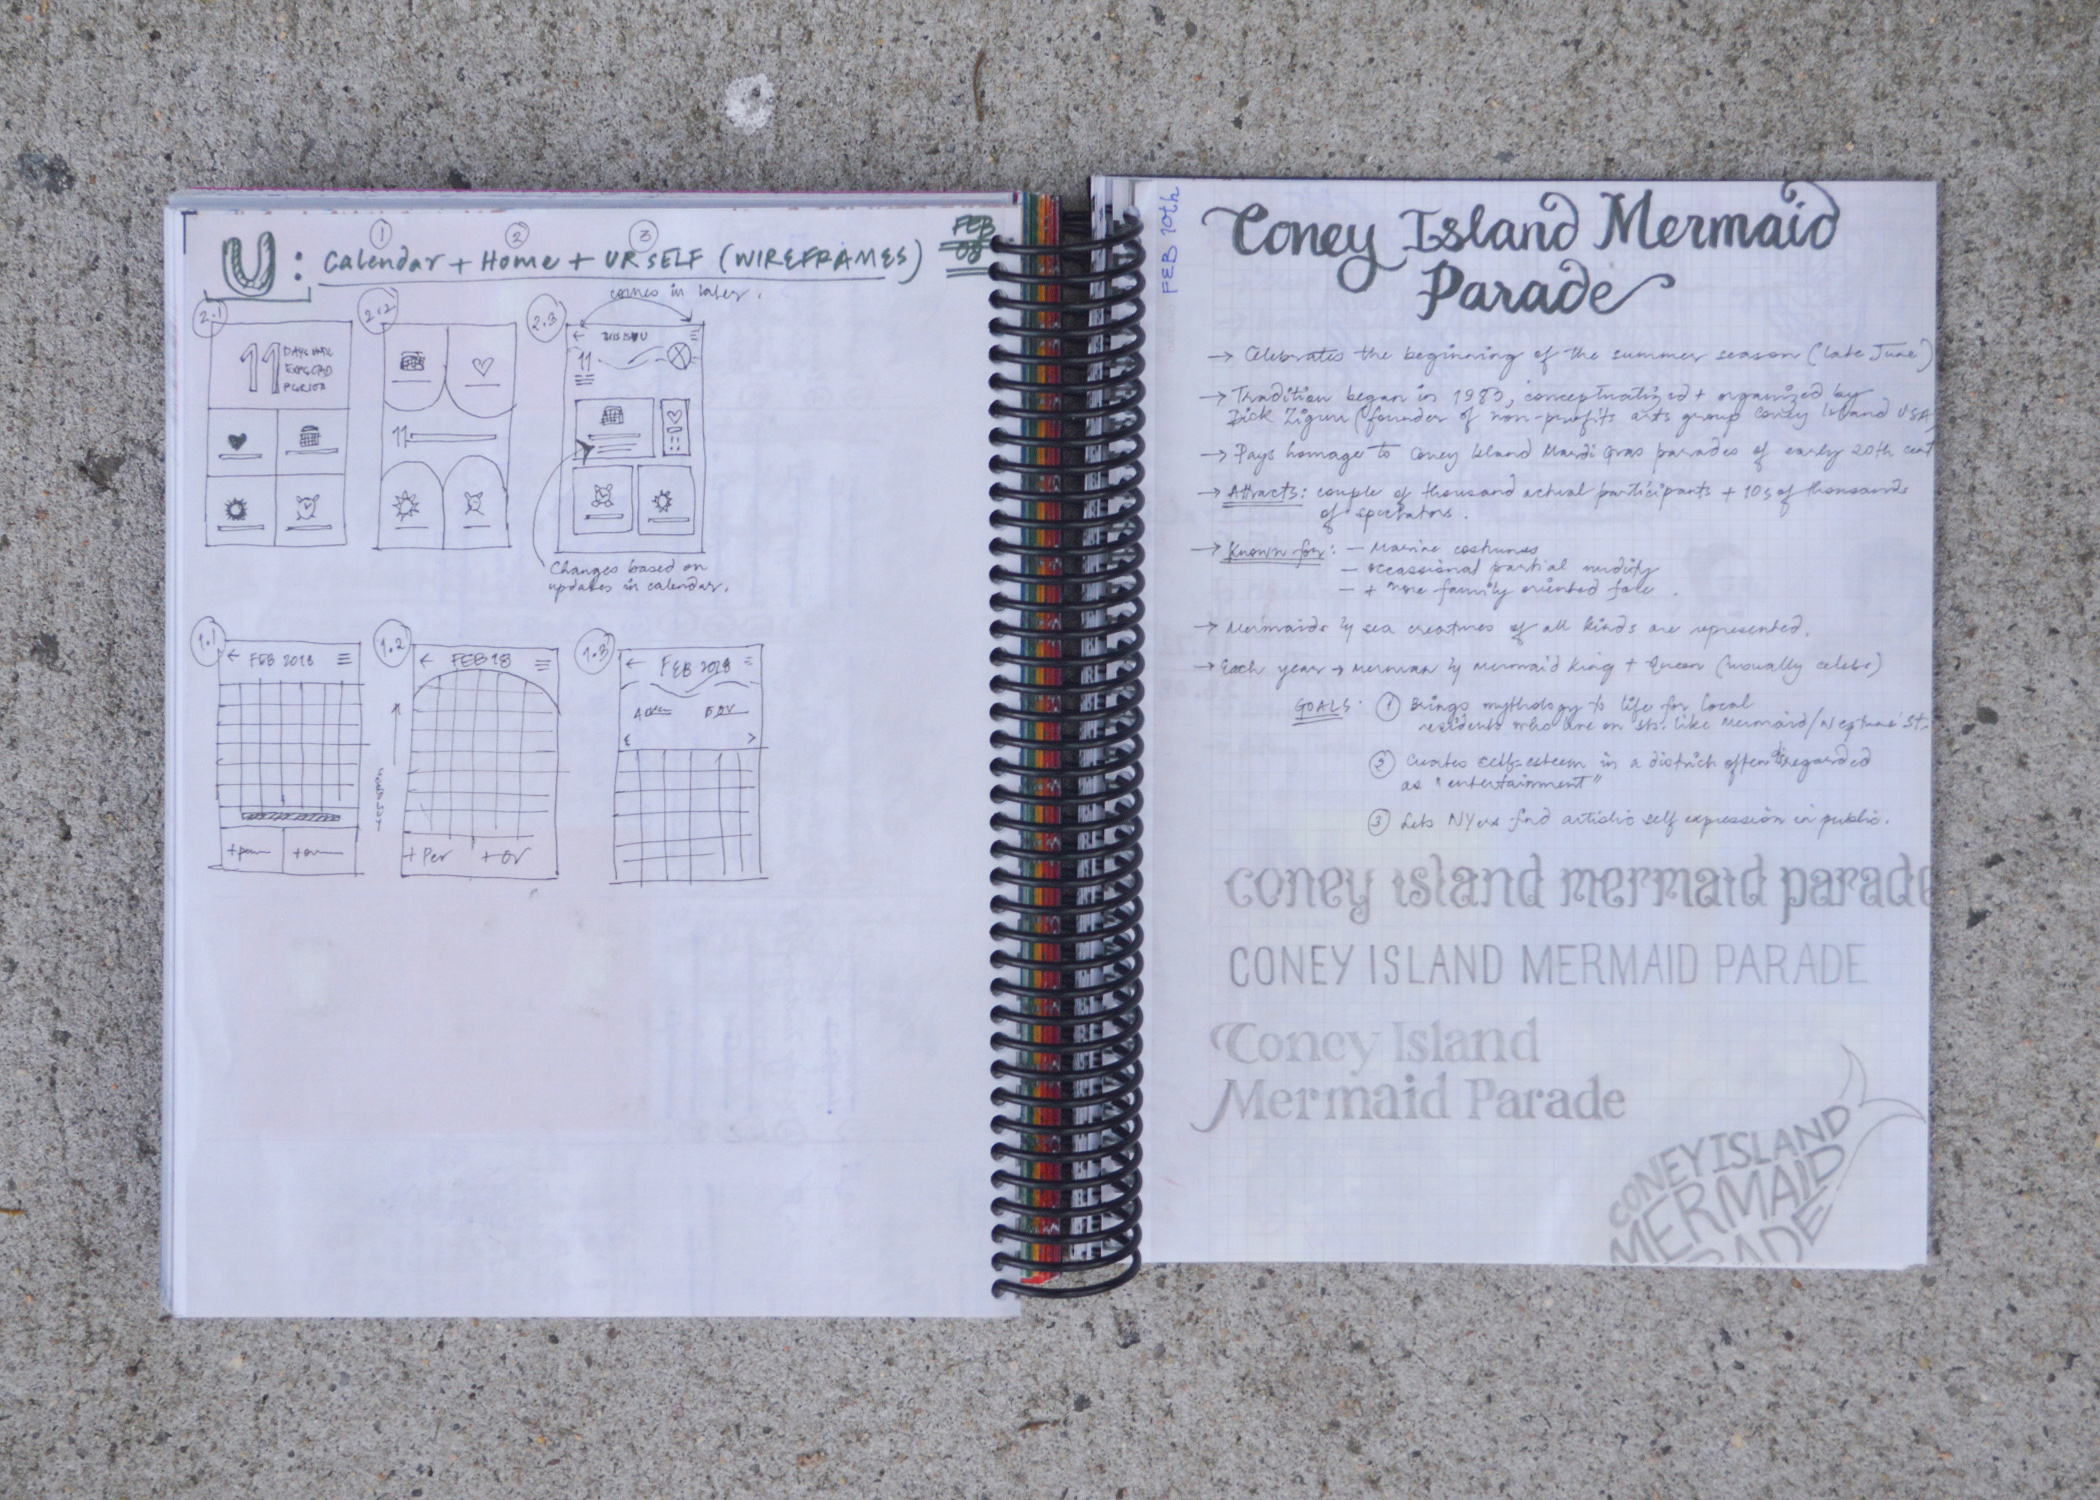 FEB 08
1 2 3
U: Calendar + Home + URSELF (WIREFRAMES)
comes in later.
2.1
11 DAYS UNTIL
EXPECTED
PERIOD
2.2
11
2.3
11
Changes based on
updates in calendar.
1.1
← FEB 2018
1.2
← FEB 18
+ Per + Ov
1.3
← FEB 2018
< >
FEB 10th
Coney Island Mermaid
Parade
→ Celebrates the beginning of the summer season (late June)
→ Tradition began in 1983, conceptualized + organized by
Dick Zigun (founder of non-profits arts group Coney Island USA
→ Pays homage to Coney Island Mardi Gras parades of early 20th cent
→ Attracts: couple of thousand actual participants + 10s of thousands
of spectators.
→ Known for: - Marine costumes
- occassional partial nudity
- + more family oriented fare.
→ Mermaids & sea creatures of all kinds are represented.
→ Each year → merman & mermaid King + Queen (usually celebs)
GOALS: 1 Brings mythology to life for local
residents who live on sts. like Mermaid/Neptune St.
2 Creates self-esteem in a district often disregarded
as "entertainment"
3 Lets NYers find artistic self expression in public.
coney island mermaid parade
CONEY ISLAND MERMAID PARADE
Coney Island
Mermaid Parade
CONEY ISLAND
MERMAID
PARADE